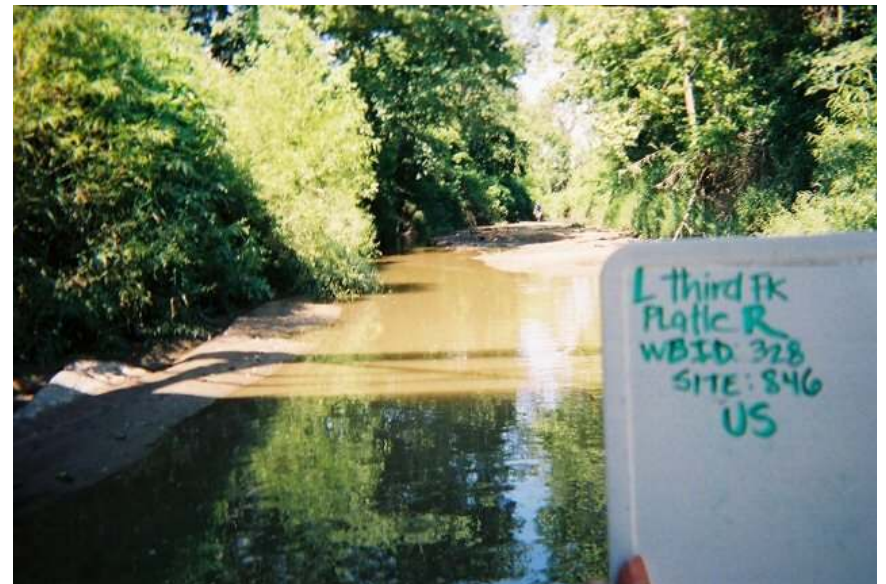 L third FK
Platte R
WBID 328
SITE: 846
US